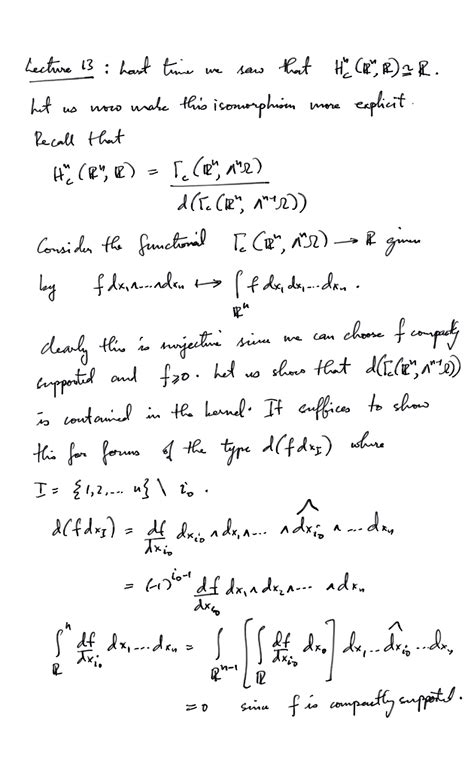 Lecture 13 : Last time we saw that H_c^n(ℝ^n, ℝ) ≃ ℝ.
Let us now make this isomorphism more explicit.
Recall that
H_c^n(ℝ^n, ℝ) = Γ_c(ℝ^n, Λ^nΩ) / d(Γ_c(ℝ^n, Λ^{n-1}Ω))
Consider the functional Γ_c(ℝ^n, Λ^nΩ) → ℝ given
by f dx_1∧...∧dx_n ↦ ∫_{ℝ^n} f dx_1 dx_2...dx_n.
Clearly this is surjective since we can choose f compactly
supported and f≥0. Let us show that d(Γ_c(ℝ^n, Λ^{n-1}Ω))
is contained in the kernel. It suffices to show
this for forms of the type d(f dx_I) where
I = {1,2,... n} \ i_0.
d(f dx_I) = df/dx_{i_0} dx_{i_0} ∧ dx_1 ∧... ∧ \widehat{dx_{i_0}} ∧ ... dx_n
= (-1)^{i_0-1} df/dx_{i_0} dx_1 ∧ dx_2 ∧... ∧dx_n
∫_ℝ^n df/dx_{i_0} dx_1...dx_n = ∫_{ℝ^{n-1}} [∫_ℝ df/dx_{i_0} dx_0] dx_1...\widehat{dx_{i_0}}...dx_n
=0 since f is compactly supported.